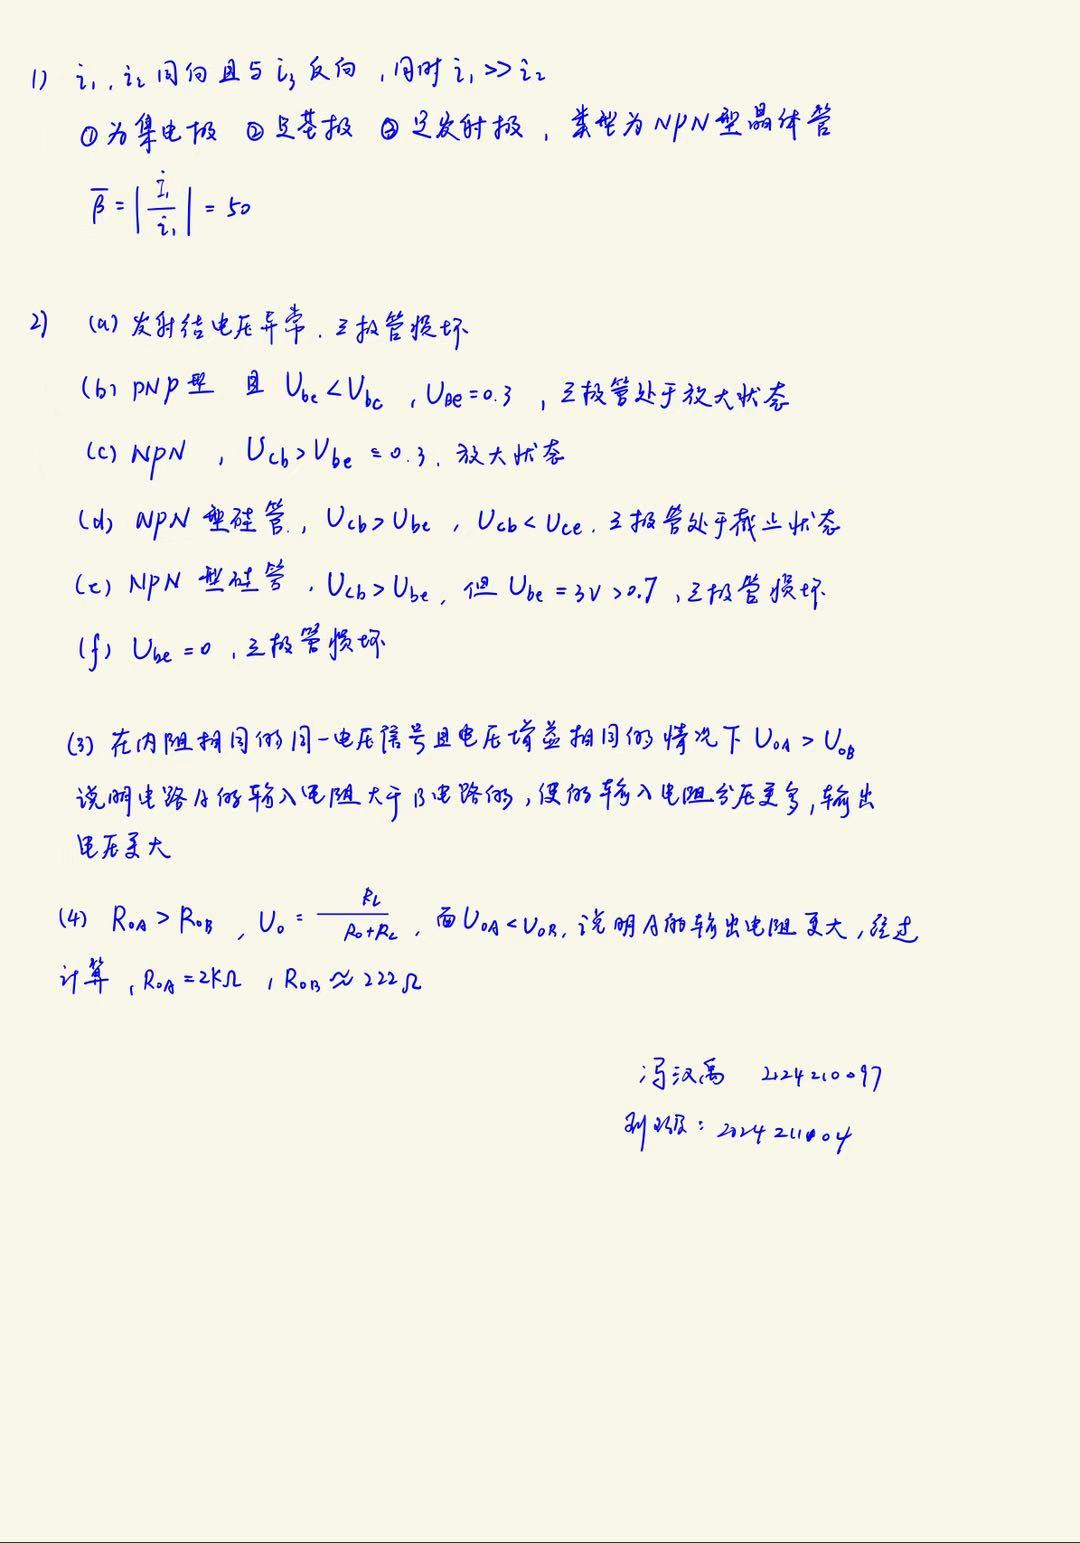 1) i₁, i₂ 同向且与 i₃ 反向, 同时 i₁>>i₂
①为集电极 ②是基极 ③是发射极, 类型为NPN型晶体管
β̅=|i₁/i₁|=50
2) (a) 发射结电压异常. 三极管损坏
(b) PNP型 且 Ube<Ubc, UBE=0.3, 三极管处于放大状态
(c) NPN, Ucb>Ube=0.3. 放大状态
(d) NPN 型硅管., Ucb>Ube, Ucb<Uce. 三极管处于截止状态
(e) NPN 型硅管, Ucb>Ube, 但 Ube=3V>0.7, 三极管损坏
(f) Ube=0, 三极管损坏
(3) 在内阻相同的同一电压信号且电压增益相同的情况下 UoA>UoB
说明电路A的输入电阻大于B电路的, 使的输入电阻分压更多, 输出
电压更大
(4) RoA>RoB, Uo=RL/Ro+RL, 而UoA<UoB, 说明A的输出电阻更大, 经过
计算, RoA=2KΩ, RoB≈222Ω
冯汉禹 2024210097
班级: 2024211004